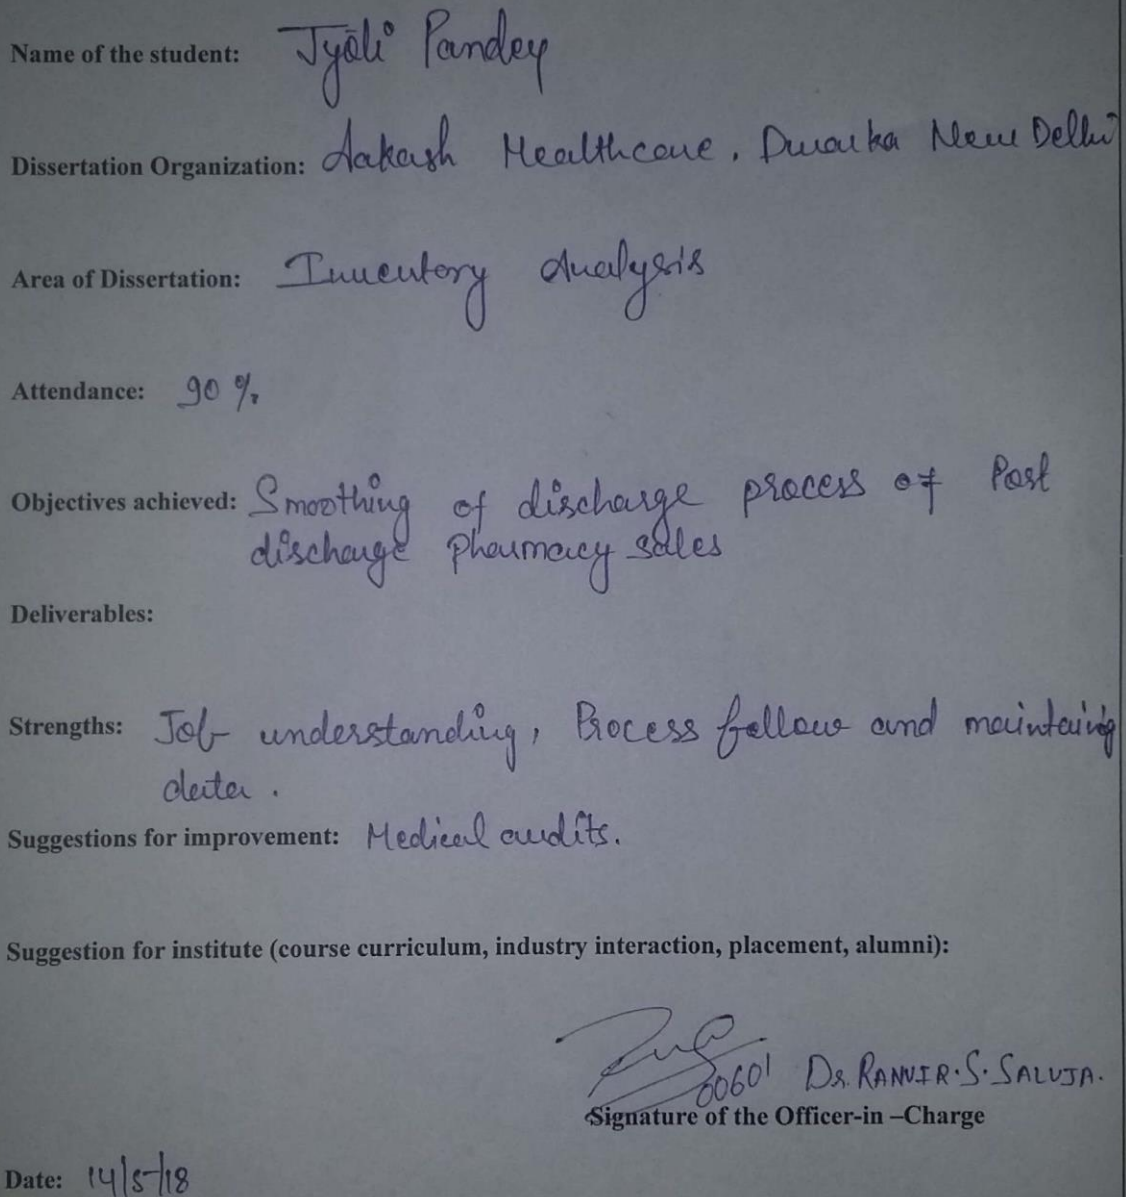 Name of the student: Jyoti Pandey
Dissertation Organization: Aakash Healthcare, Dwarka New Delhi
Area of Dissertation: Inventory Analysis
Attendance: 90 %
Objectives achieved: Smoothing of discharge process of Post
discharge pharmacy sales
Deliverables:
Strengths: Job understanding, Process follow and maintaing
data.
Suggestions for improvement: Medical audits.
Suggestion for institute (course curriculum, industry interaction, placement, alumni):
00601 Dr. RANVIR.S.SALUJA.
Signature of the Officer-in –Charge
Date: 14/5/18